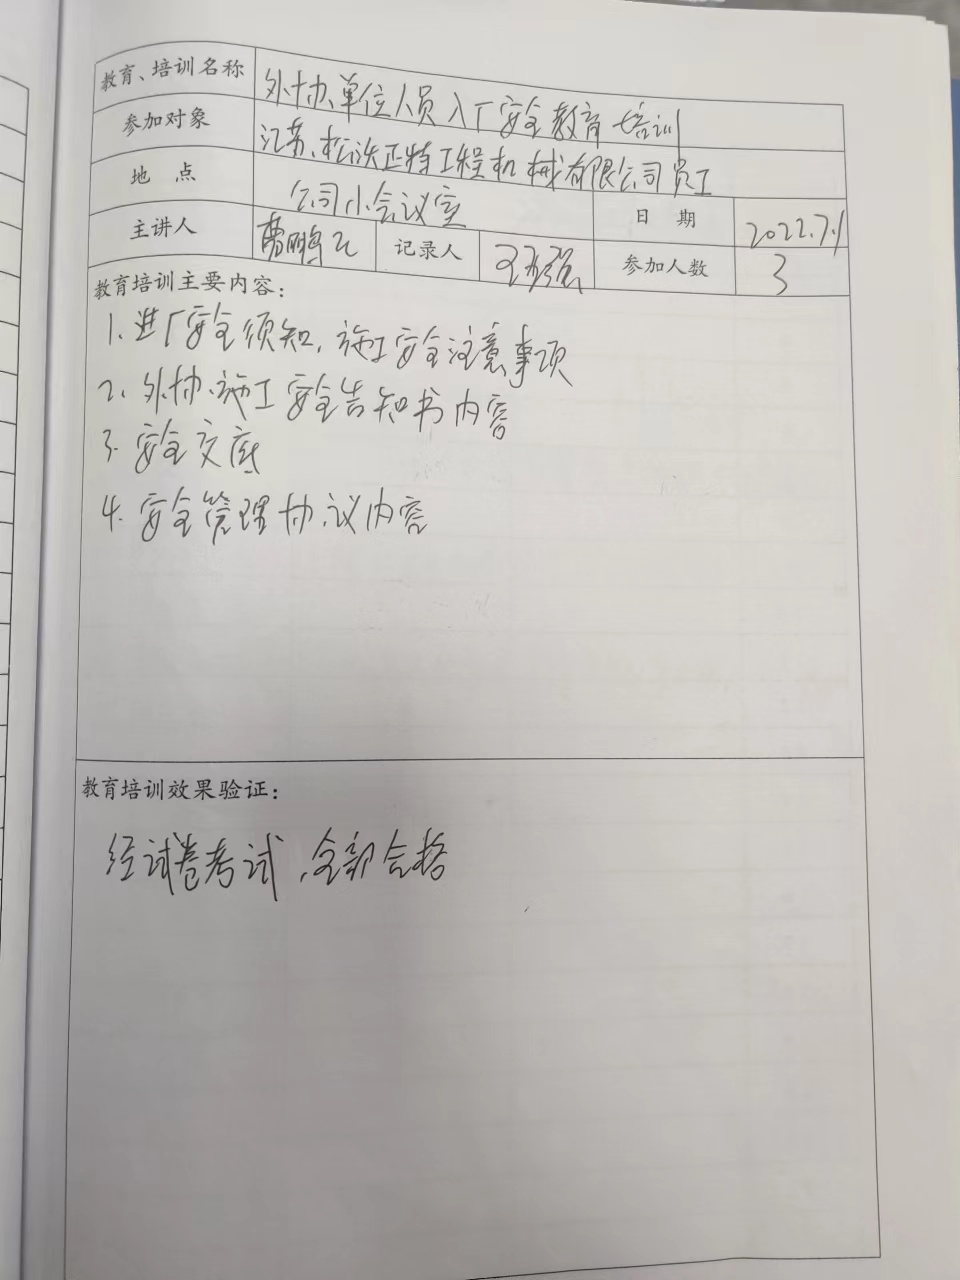 教育、培训名称 外协单位人员入厂安全教育培训
参加对象 江苏松沃正特工程机械有限公司员工
地 点 公司小会议室 日 期 2022.7.1
主讲人 曹鹏飞 记录人 参加人数 3
教育培训主要内容：
1. 进厂安全须知，施工安全注意事项
2、外协施工安全告知书内容
3. 安全交底
4. 安全管理协议内容
教育培训效果验证：
经试卷考试，全部合格